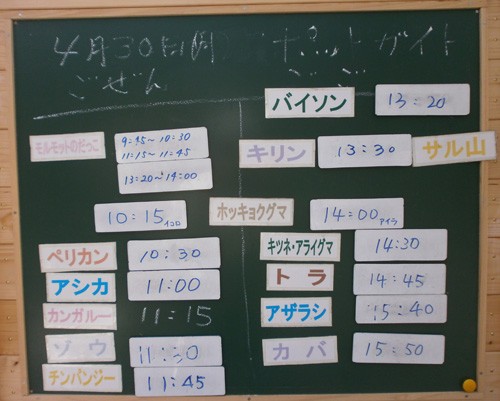 4月30日(月) スポットガイド
ごぜん ごご
バイソン 13:20
モルモットのだっこ 9:45~10:30
11:15~11:45
13:20~14:00
キリン 13:30 サル山
10:15 イコロ ホッキョクグマ 14:00 アイラ
ペリカン 10:30
キツネ・アライグマ 14:30
アシカ 11:00
トラ 14:45
カンガルー 11:15
アザラシ 15:40
ゾウ 11:30
カバ 15:50
チンパンジー 11:45